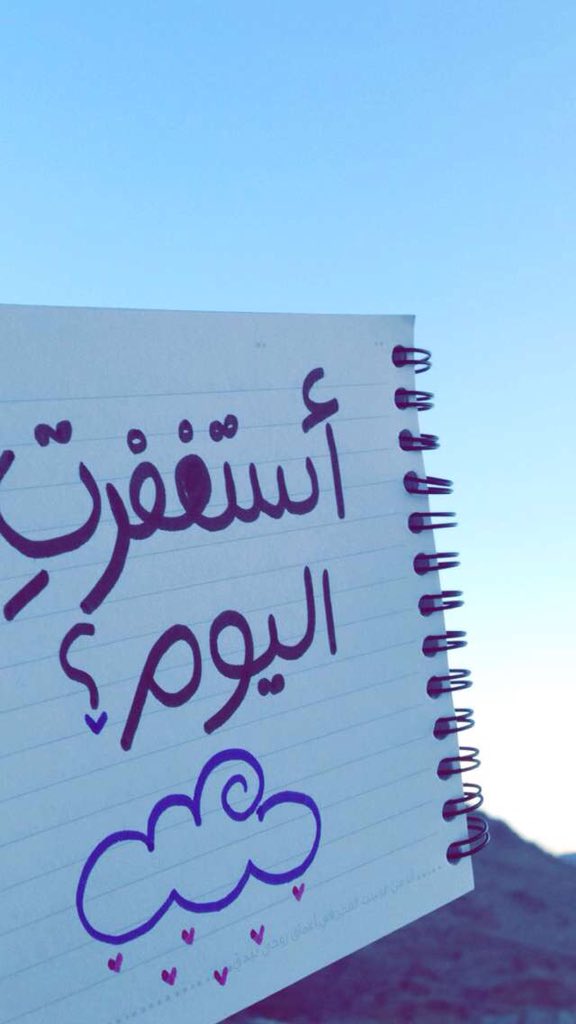 أستغفرتِ
اليوم؟